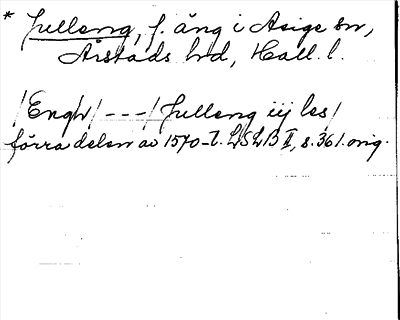 * Julleng, f. äng i Asige sn,
Årstads hd, Hall. l.
/Engh/ - - - / Julleng iij les /
förra delen av 1570-t. LSLB II, s. 361. orig.